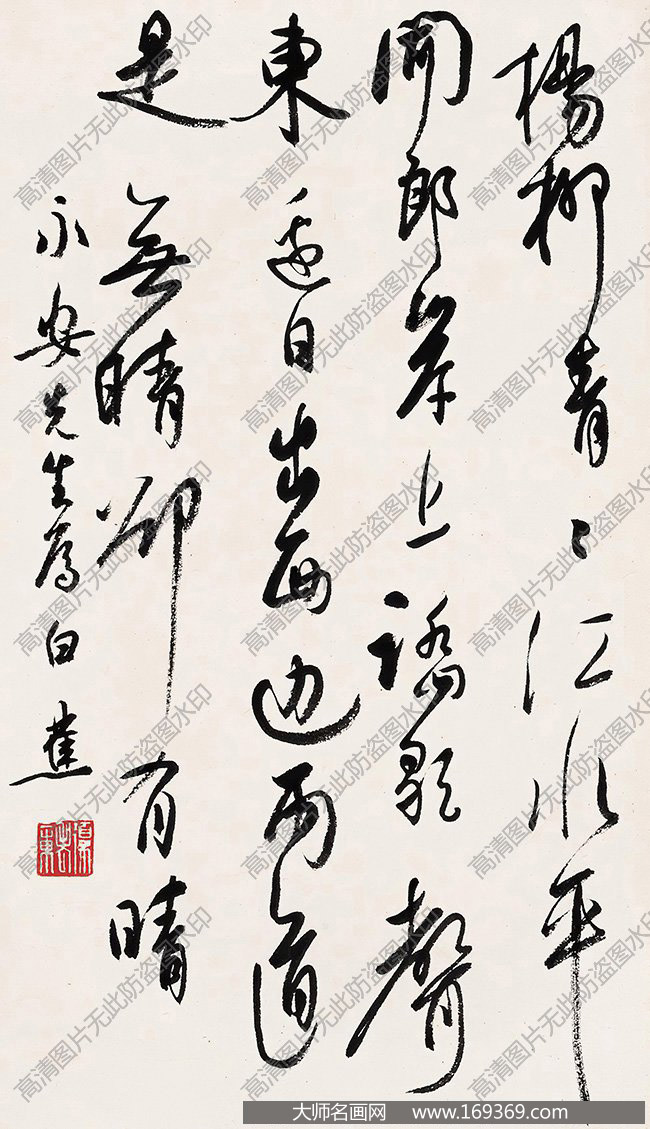 楊柳青〻江水平
聞郎岸上歌聲
東邊日出西邊雨道
是無晴卻有晴
永安先生屬白蕉
高清图片无此防盗图水印
大师名画网 www.169369.com